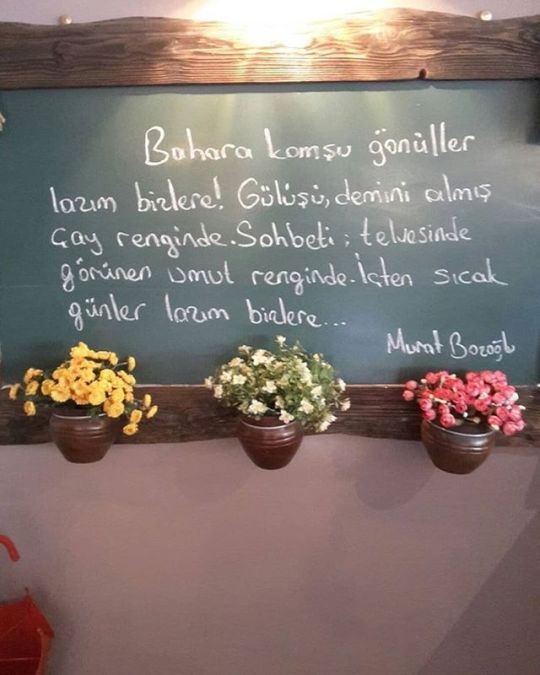 Bahara komşu gönüller
lazım bizlere! Gülüşü, demini almış
çay renginde. Sohbeti; telvesinde
görünen umut renginde. İçten sıcak
günler lazım bizlere...
Murat Bozoğlu